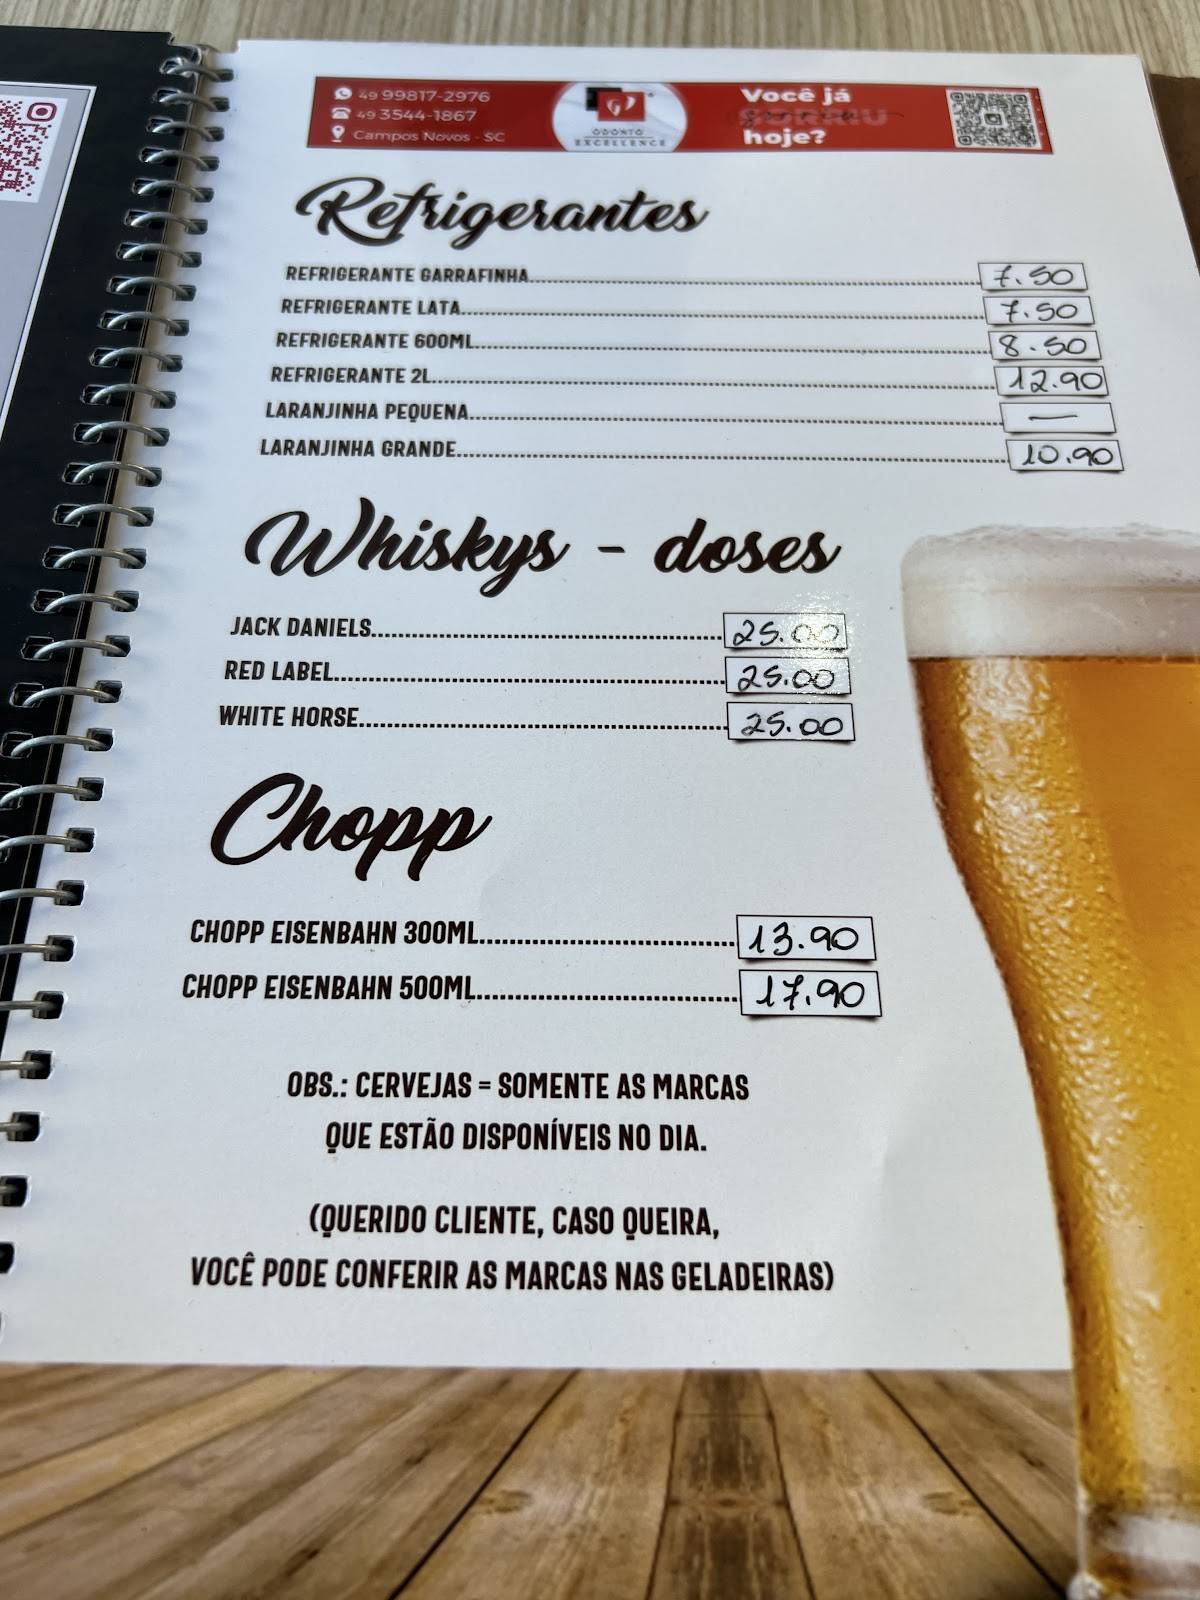 49 99817-2976
49 3544-1867
Campos Novos - SC
ODONTO
EXCELLENCE
Você já
hoje?
Refrigerantes
REFRIGERANTE GARRAFINHA 7.50
REFRIGERANTE LATA 7.50
REFRIGERANTE 600ML 8.50
REFRIGERANTE 2L 12.90
LARANJINHA PEQUENA —
LARANJINHA GRANDE 10.90
Whiskys - doses
JACK DANIELS 25.00
RED LABEL 25.00
WHITE HORSE 25.00
Chopp
CHOPP EISENBAHN 300ML 13.90
CHOPP EISENBAHN 500ML 17.90
OBS.: CERVEJAS = SOMENTE AS MARCAS
QUE ESTÃO DISPONÍVEIS NO DIA.
(QUERIDO CLIENTE, CASO QUEIRA,
VOCÊ PODE CONFERIR AS MARCAS NAS GELADEIRAS)